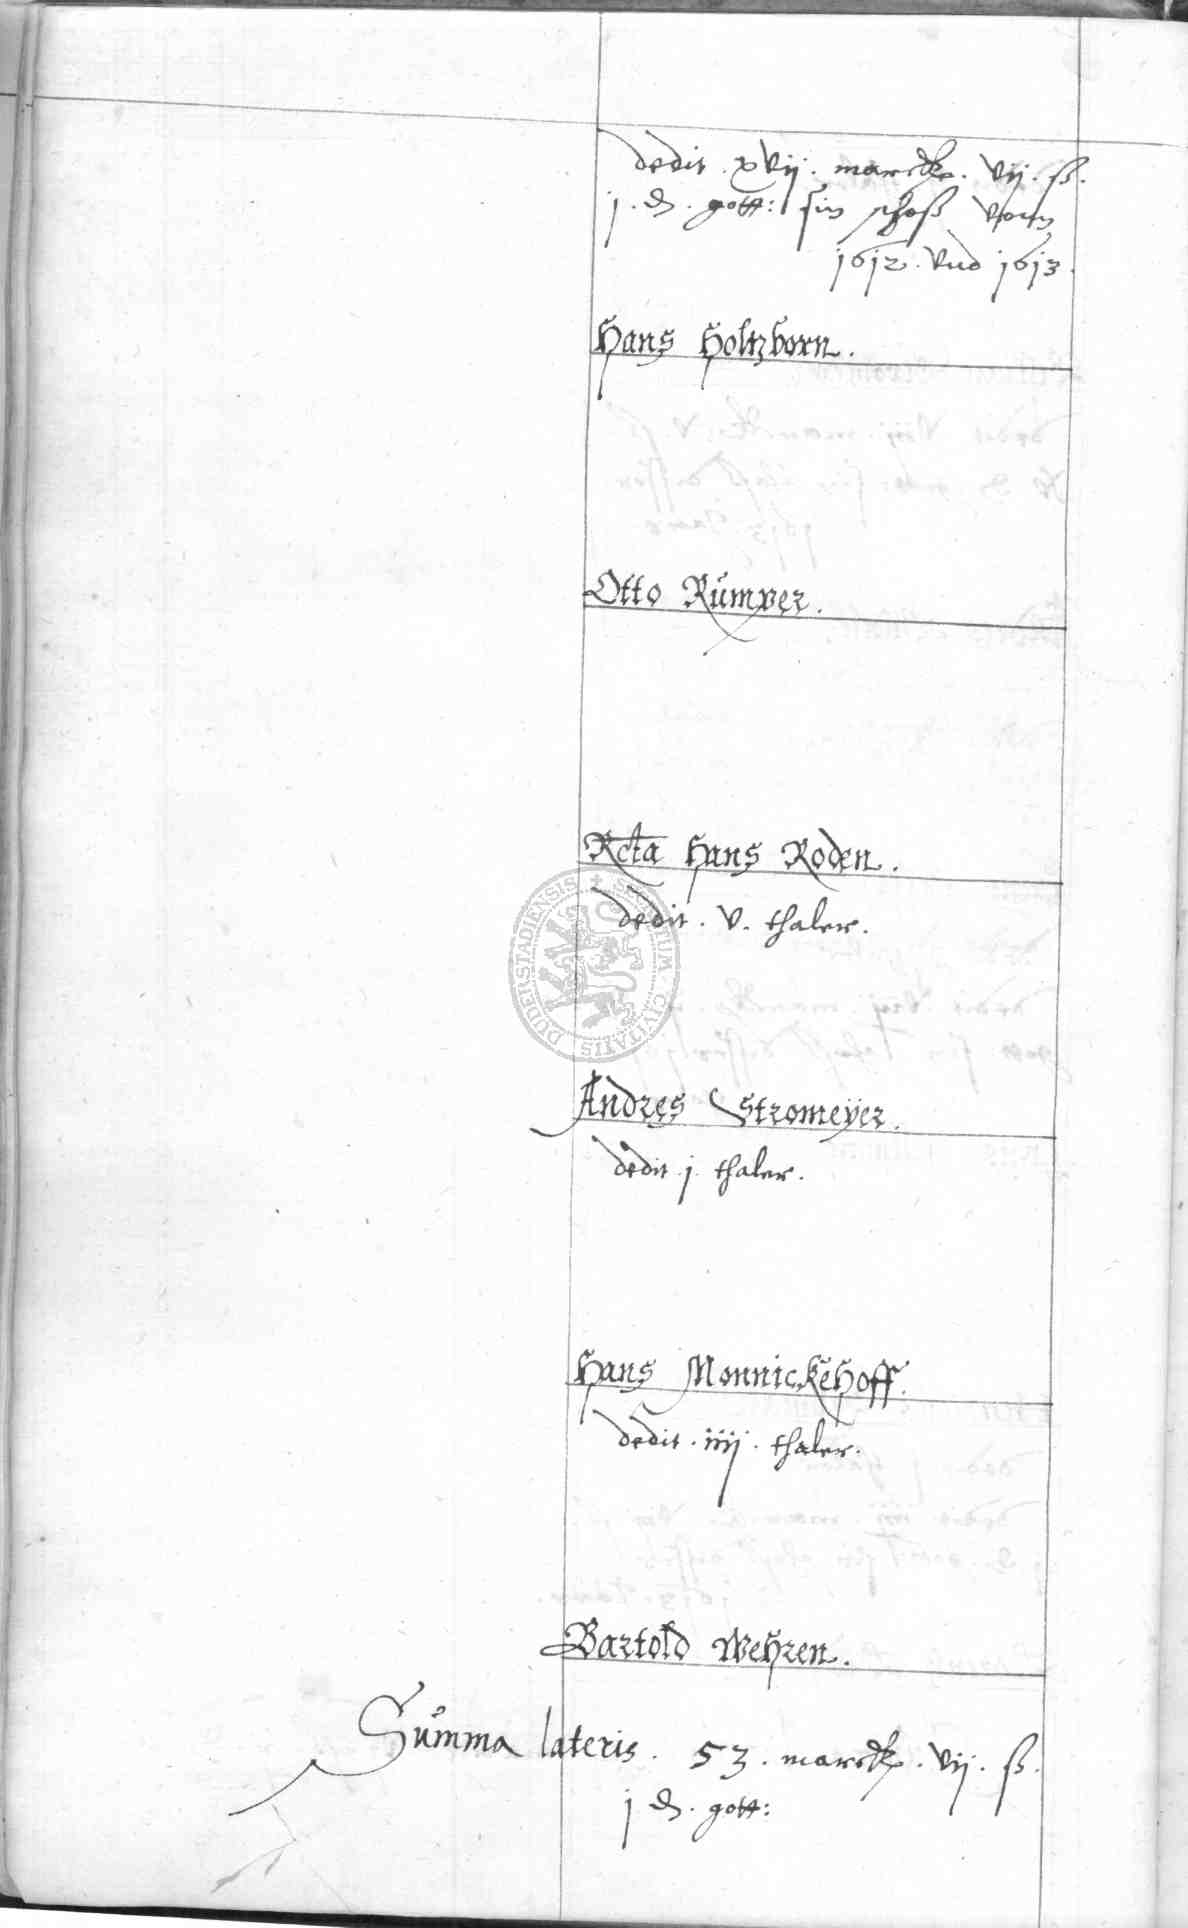 dedit . xvij . marck . vij . ß .
j . d . gott: sin schoß vom
1612 . vnd 1613 .
Hans Holtzborn .
Otto Rümper .
Rcta Hans Roden .
dedit . v . thaler .
SECRETUM CIVITATIS DUDERSTADIENSIS
Andres Stromeÿer .
dedit j thaler .
Hans Monnickehoff .
dedit . iiij . thaler .
Bartold Wehren .
Summa lateris . 53 . marck . vij . ß .
j d . gott: